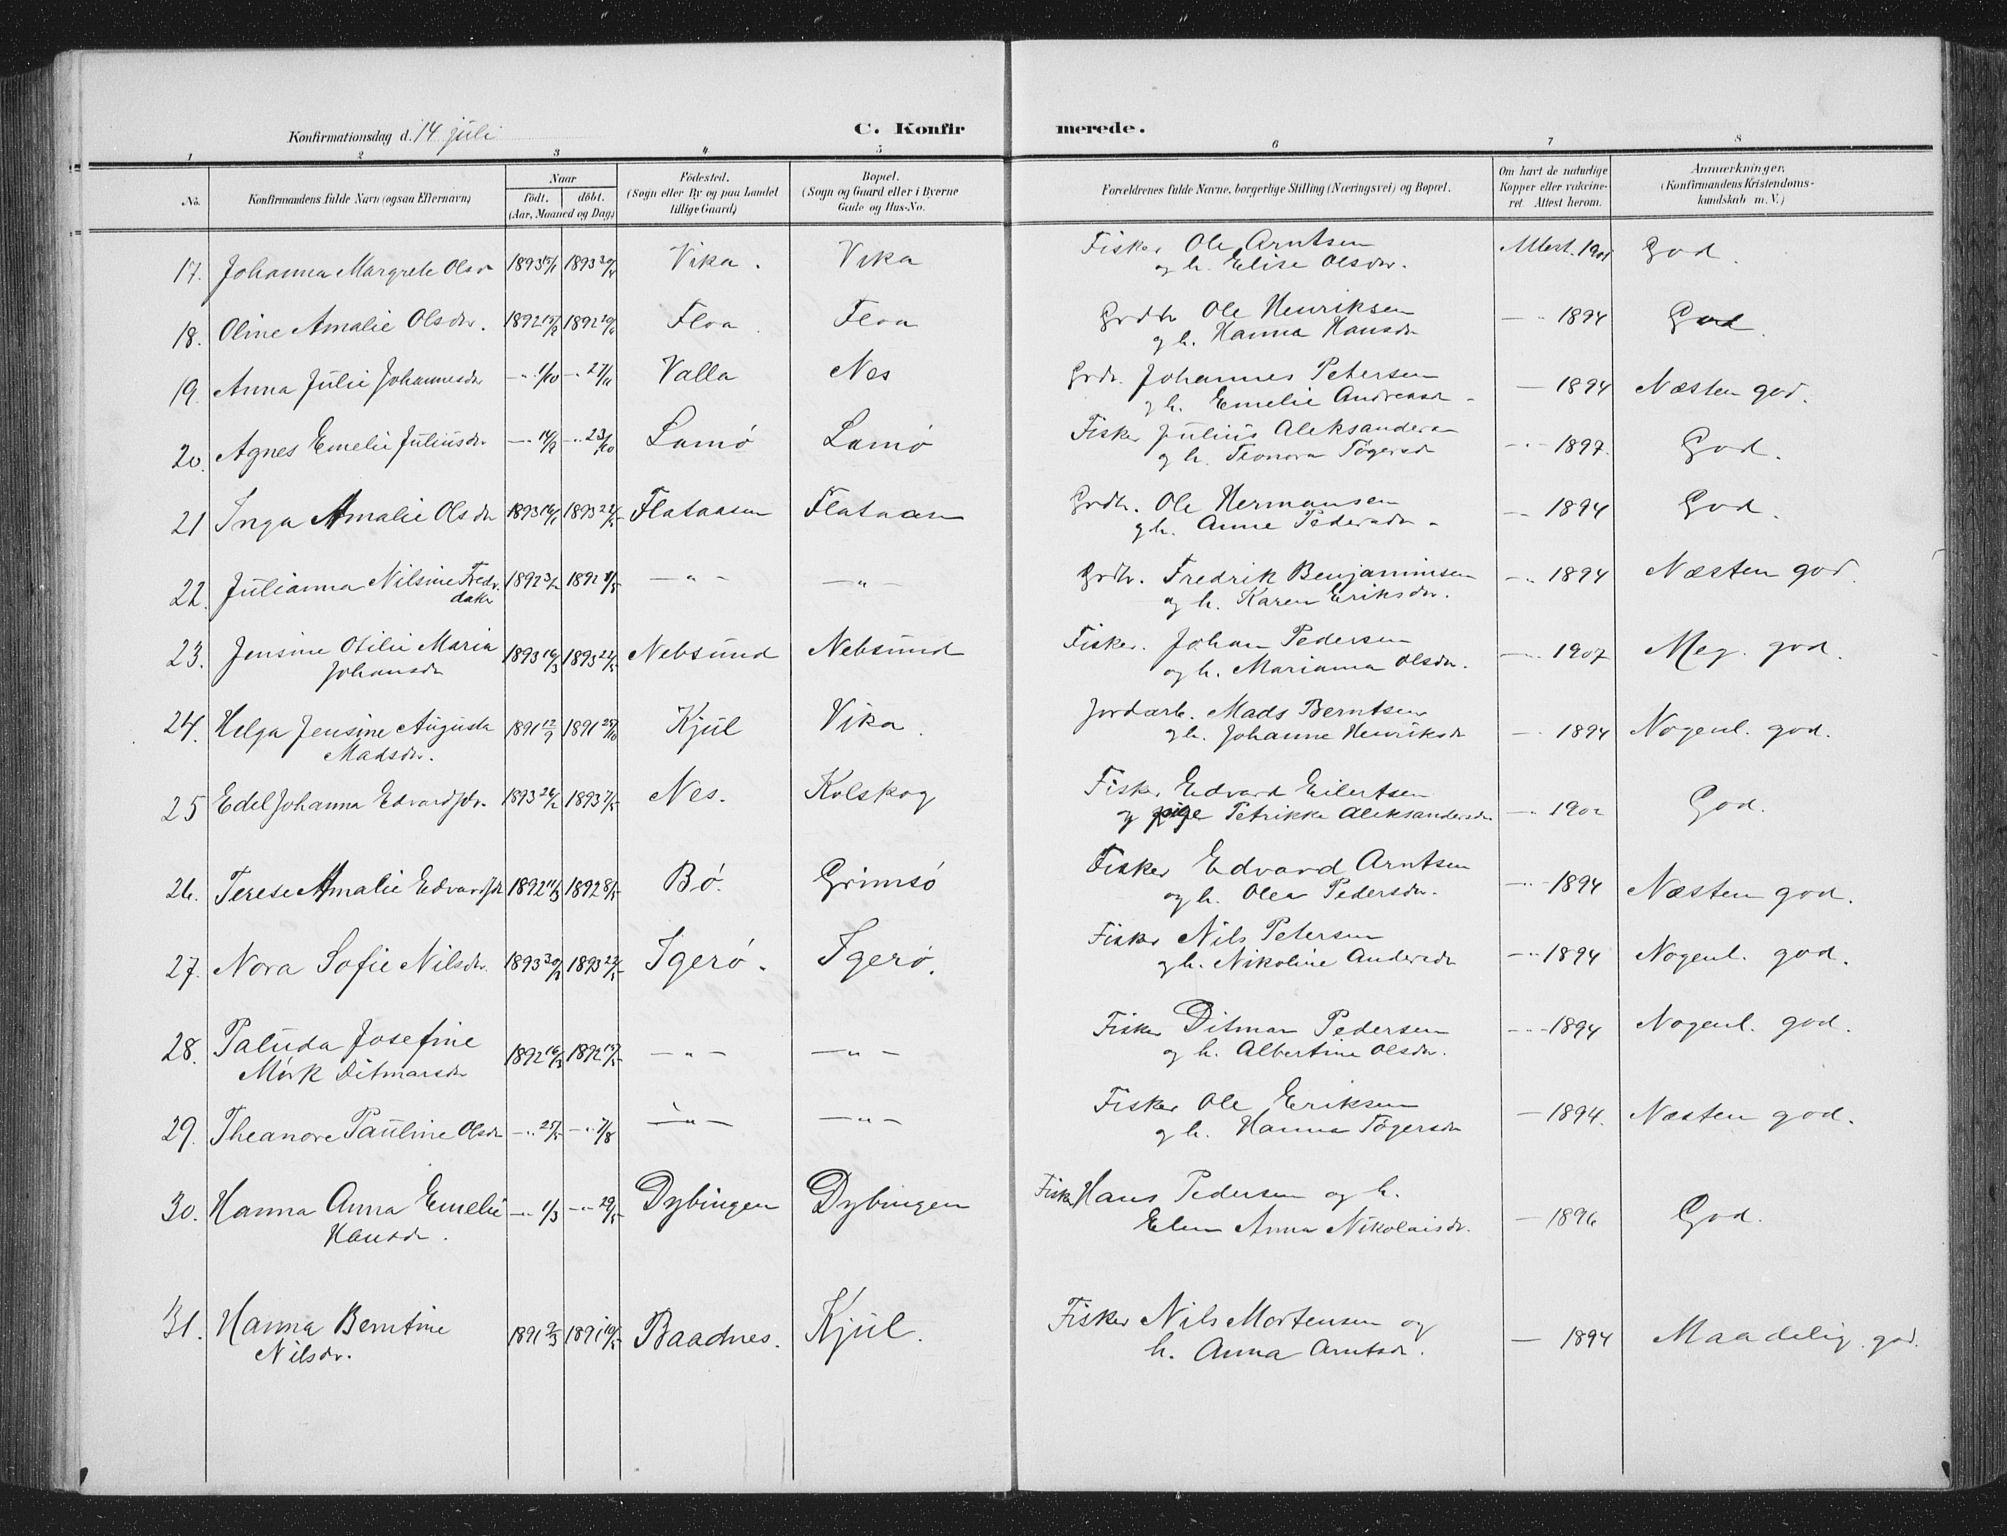 Konfirmationsdag d. 14 juli
C. Konfirmerede.
1 2 3 4 5 6 7 8
No. Konfirmandens fulde Navn (ogsaa Efternavn) Naar født. døbt. (Aar, Maaned og Dag) Fødested. (Sogn eller By og paa Landet tillige Gaard) Bopæl. (Sogn og Gaard eller i Byerne Gade og Hus-No. Forældrenes fulde Navne, borgerlige Stilling (Næringsvei) og Bopæl. Om havt de naturlige Kopper eller vakcineret. Attest herom. Anmærkninger. (Konfirmandens Kristendomskundskab m. V.)
17. Johanna Margrete Olsdr 1893 1893 Vika. Vika Fisker Ole Arntsen Attest. 1901 God.
og h. Elise Olsdr.
18. Oline Amalie Olsdr. 1892 1892 Floa. Floa Grdbr Ole Henriksen — " 1894 God.
og h. Hanna Hansdr
19. Anna Julie Johannesdr — " 1/10 — " 27/11 Valla Nes Grdbr. Johannes Petersen — 1894 Næsten god.
og h. Emelie Andreasdr
20. Agnes Emelie Juliusdr. — " — " 23/10 Lamø Lamø Fisker Julius Aleksandersen — " 1897. God.
og h. Leonora Tøgersdr
21 Inga Amalie Olsdr 1893 1893 Flataasen Flataasen Grdbr. Ole Hermansen — " 1894 God.
og h. Anne Pedersdr
22. Julianna Nilsine Fredr. 1892 1892 — " — — " — Grdbr. Fredrik Benjaminsen — " 1894 Næsten god.
dakr og h. Karen Eriksdr.
23. Jensine Otilie Maria 1893 16/3 1893 Nebsund Nebsund Fisker. Johan Pedersen — " 1907 Meg. god.
Johansdr og h. Marianna Olsdr.
24. Helga Jensine Augusta 1891 1891 25/10 Kjul Vika. Jordarb. Mads Berntsen — " 1894 Nogenl. god.
Madsdr. og h. Johanne Henriksdr
25 Edel Johanna Edvardsdr. 1893 1893 Nes. Kolskog Fisker Edvard Eilertsen — " 1902 God.
og pige Petrikke Aleksandersdr
26. Terese Amalie Edvardsdr 1892 1892 Bø. Grimsø Fisker Edvard Arntsen — " 1894 Næsten god.
og h. Olea Pedersdr.
27. Nora Sofie Nilsdr. 1893 1893 Igerø. Igerø. Fisker Nils Petersen — " 1894 Nogenl. god.
og h. Nikoline Andersdr
28. Paluda Josefine 1892 16/3 1892 — " — — " — Fisker Ditmar Pedersen — " 1894 Nogenl. god.
Mørk Ditmarsdr og h. Albertine Olsdr.
29. Theanore Pauline Olsdr — " 25/5 — " 7/8 — " — — " — Fisker Ole Eriksen — 1894. Næsten god.
og h. Hanna Tøgersdr
30. Hanna Anna Emelie — " 1/3 — " 29/5 Dybingen Dybingen Fisk. Hans Pedersen og h. — 1896 God.
Hansdr. Elen Anna Nikolaisdr.
31. Hanna Berntine 1891 9/3 1891 Baadnes. Kjul. Fisker Nils Mortensen og — 1894 Maadelig god.
Nilsdr. h. Anna Arntsdr.